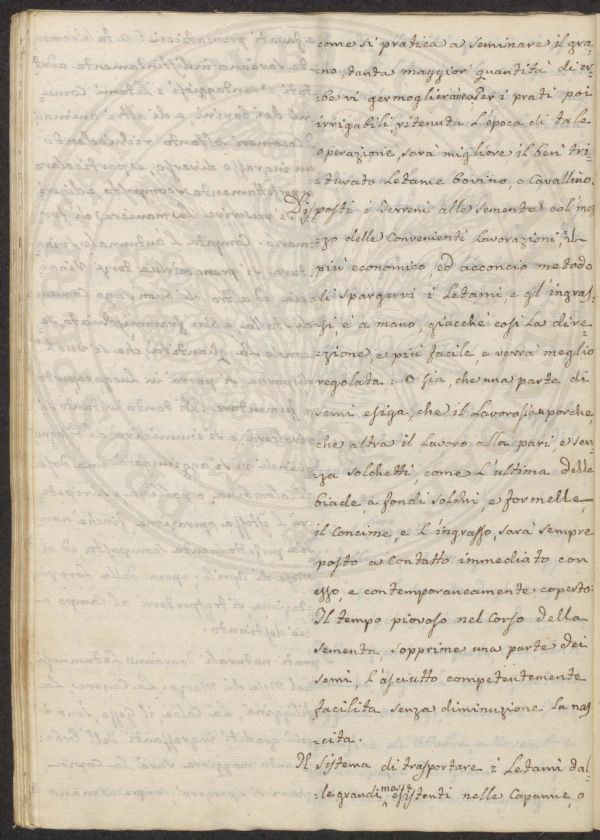 come si pratica a seminare il gra=
=no, tanta maggior quantità di er=
=be vi germoglierà. Per i prati poi
irrigabili, ritenuta l'epoca di tale
operazione, sarà migliore il ben tri=
=turato Letame bovino, o Cavallino.
Disposti i Terreni alle semente col mez
zo delle Convenienti Lavorazioni, il
più economico, ed acconcio metodo
di Spargervi i Letami, e gl'ingras=
=si è a mano, giacchè così La dire=
=zione, e più facile e verrà meglio
regolata: O sia, che una parte di
semi esiga, che il Lavoro sia a porche,
che altra il Lavoro alla pari, e sen=
za Solchetti, come L'ultima delle
biade a fondi Solchi, e formelle,
il Concime, e L'ingrasso, sarà sempre
posto a Contatto immediato con
esso, e contemporaneamente coperto.
Il tempo piovoso nel Corso della
sementa sopprime una parte dei
semi, L'asciutto competentemente
facilita senza diminuzione La nas
=cita.
Il Sistema di trasportare i Letami dal=
=le grandi masse esistenti nelle Capanne, o